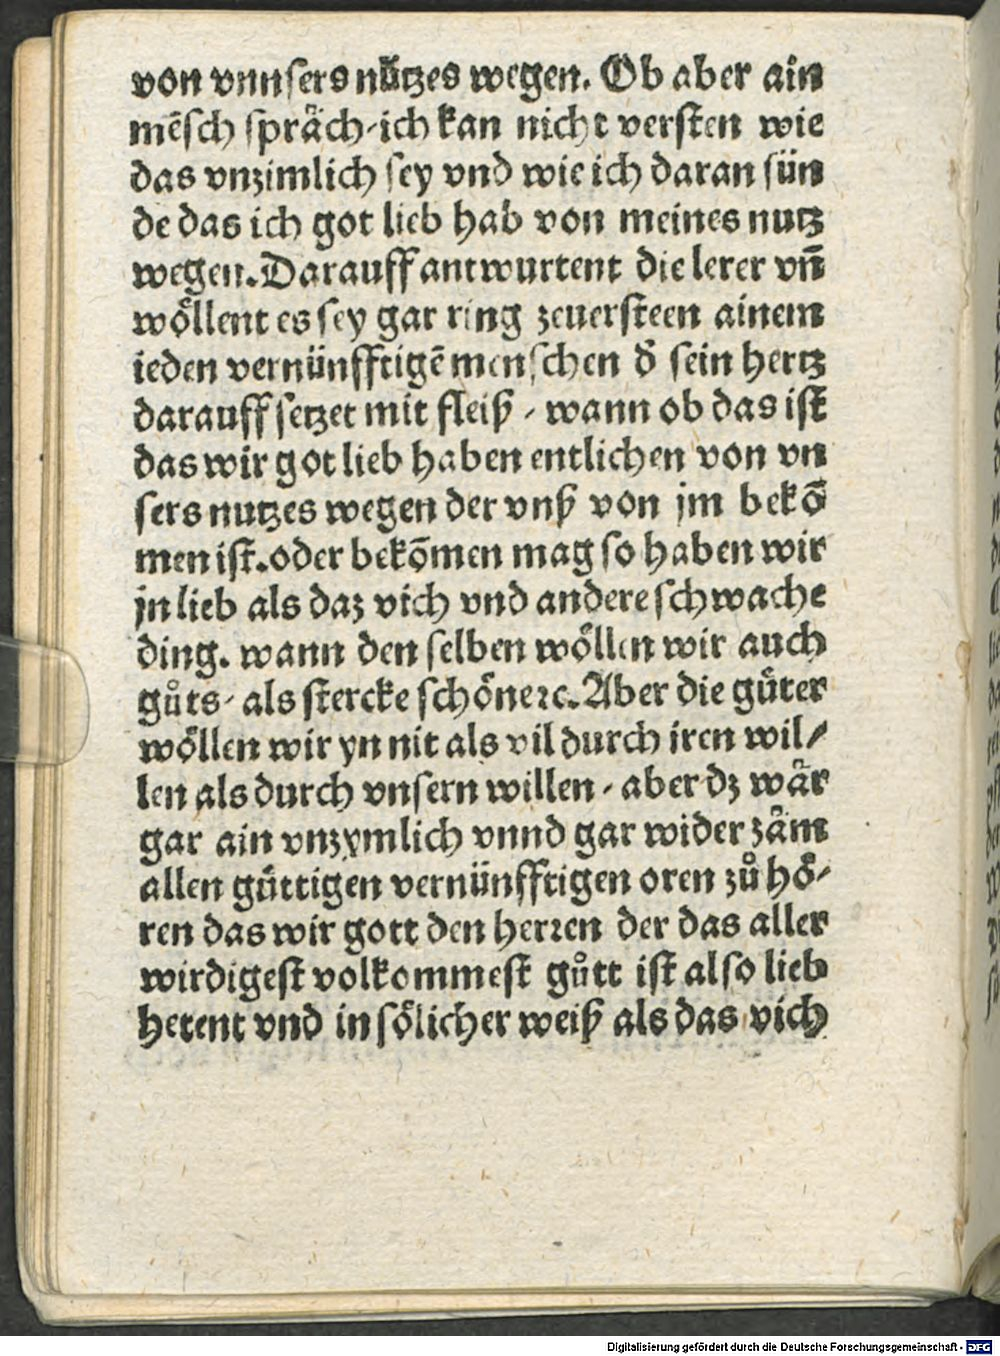 von vnnsers nůtzes wegen. Ob aber ain
mēsch spräch·ich kan nicht versten wie
das vnzimlich sey vnd wie ich daran sün
de das ich got lieb hab von meines nutz
wegen. Darauff antwurtent die lerer vn̄
wöllent es sey gar ring zeuersteen ainem
ieden vernünfftigē menschen d̄ sein hertz
darauff setzet mit fleiß · wann ob das ist
das wir got lieb haben entlichen von vn
sers nutzes wegen der vnß von jm bekō
men ist. oder bekōmen mag so haben wir
jn lieb als daz vich vnd andere schwache
ding. wann den selben wöllen wir auch
gůts · als stercke schöne ꝛc. Aber die gůter
wöllen wir yn nit als vil durch iren wil⸗
len als durch vnsern willen · aber dz wär
gar ain vnzymlich vnnd gar wider zäm
allen güttigen vernünfftigen oren zů hö⸗
ren das wir gott den herꝛen der das aller
wirdigest volkommest gůtt ist also lieb
hetent vnd in sölicher weiß als das vich
Digitalisierung gefördert durch die Deutsche Forschungsgemeinschaft - DFG